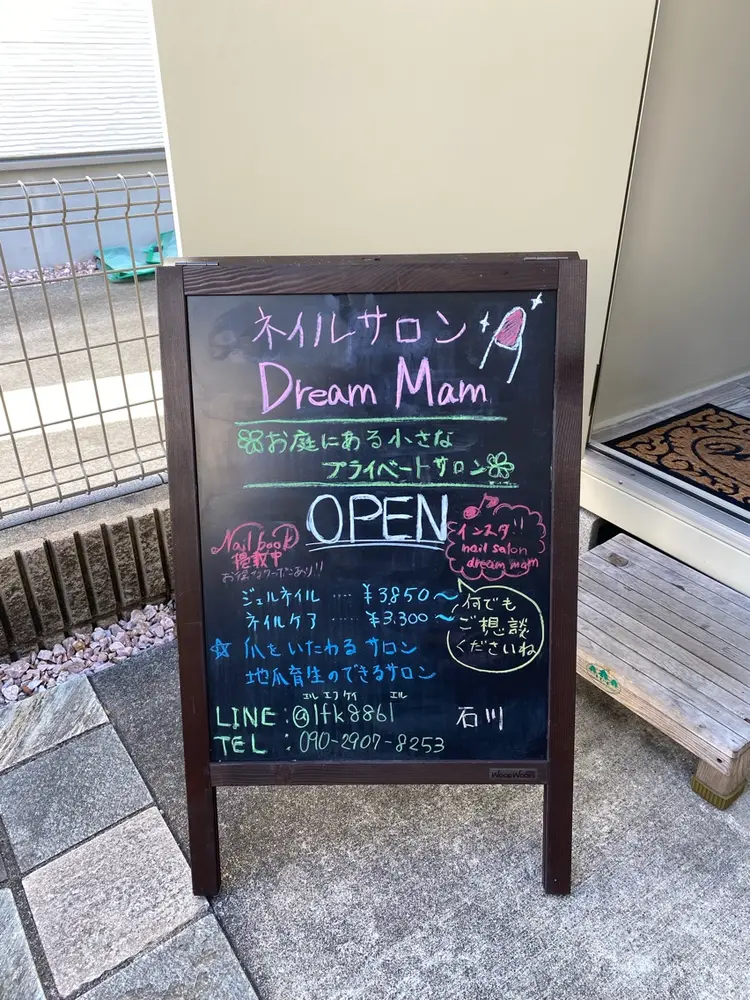 ネイルサロン
Dream Mam
お庭にある小さな
プライベートサロン
OPEN
Nail book
掲載中
お得なクーポンあり!!
インスタ!!
nail salon
dream mam
ジェルネイル ‥‥ ¥3,850〜
ネイルケア ‥‥ ¥3,300〜
何でも
ご相談
くださいね
☆ 爪をいたわるサロン
地爪育生のできるサロン
エル エフ ケイ エル
LINE:@lfk8861
石川
TEL:090-2907-8253
WOODWOODS